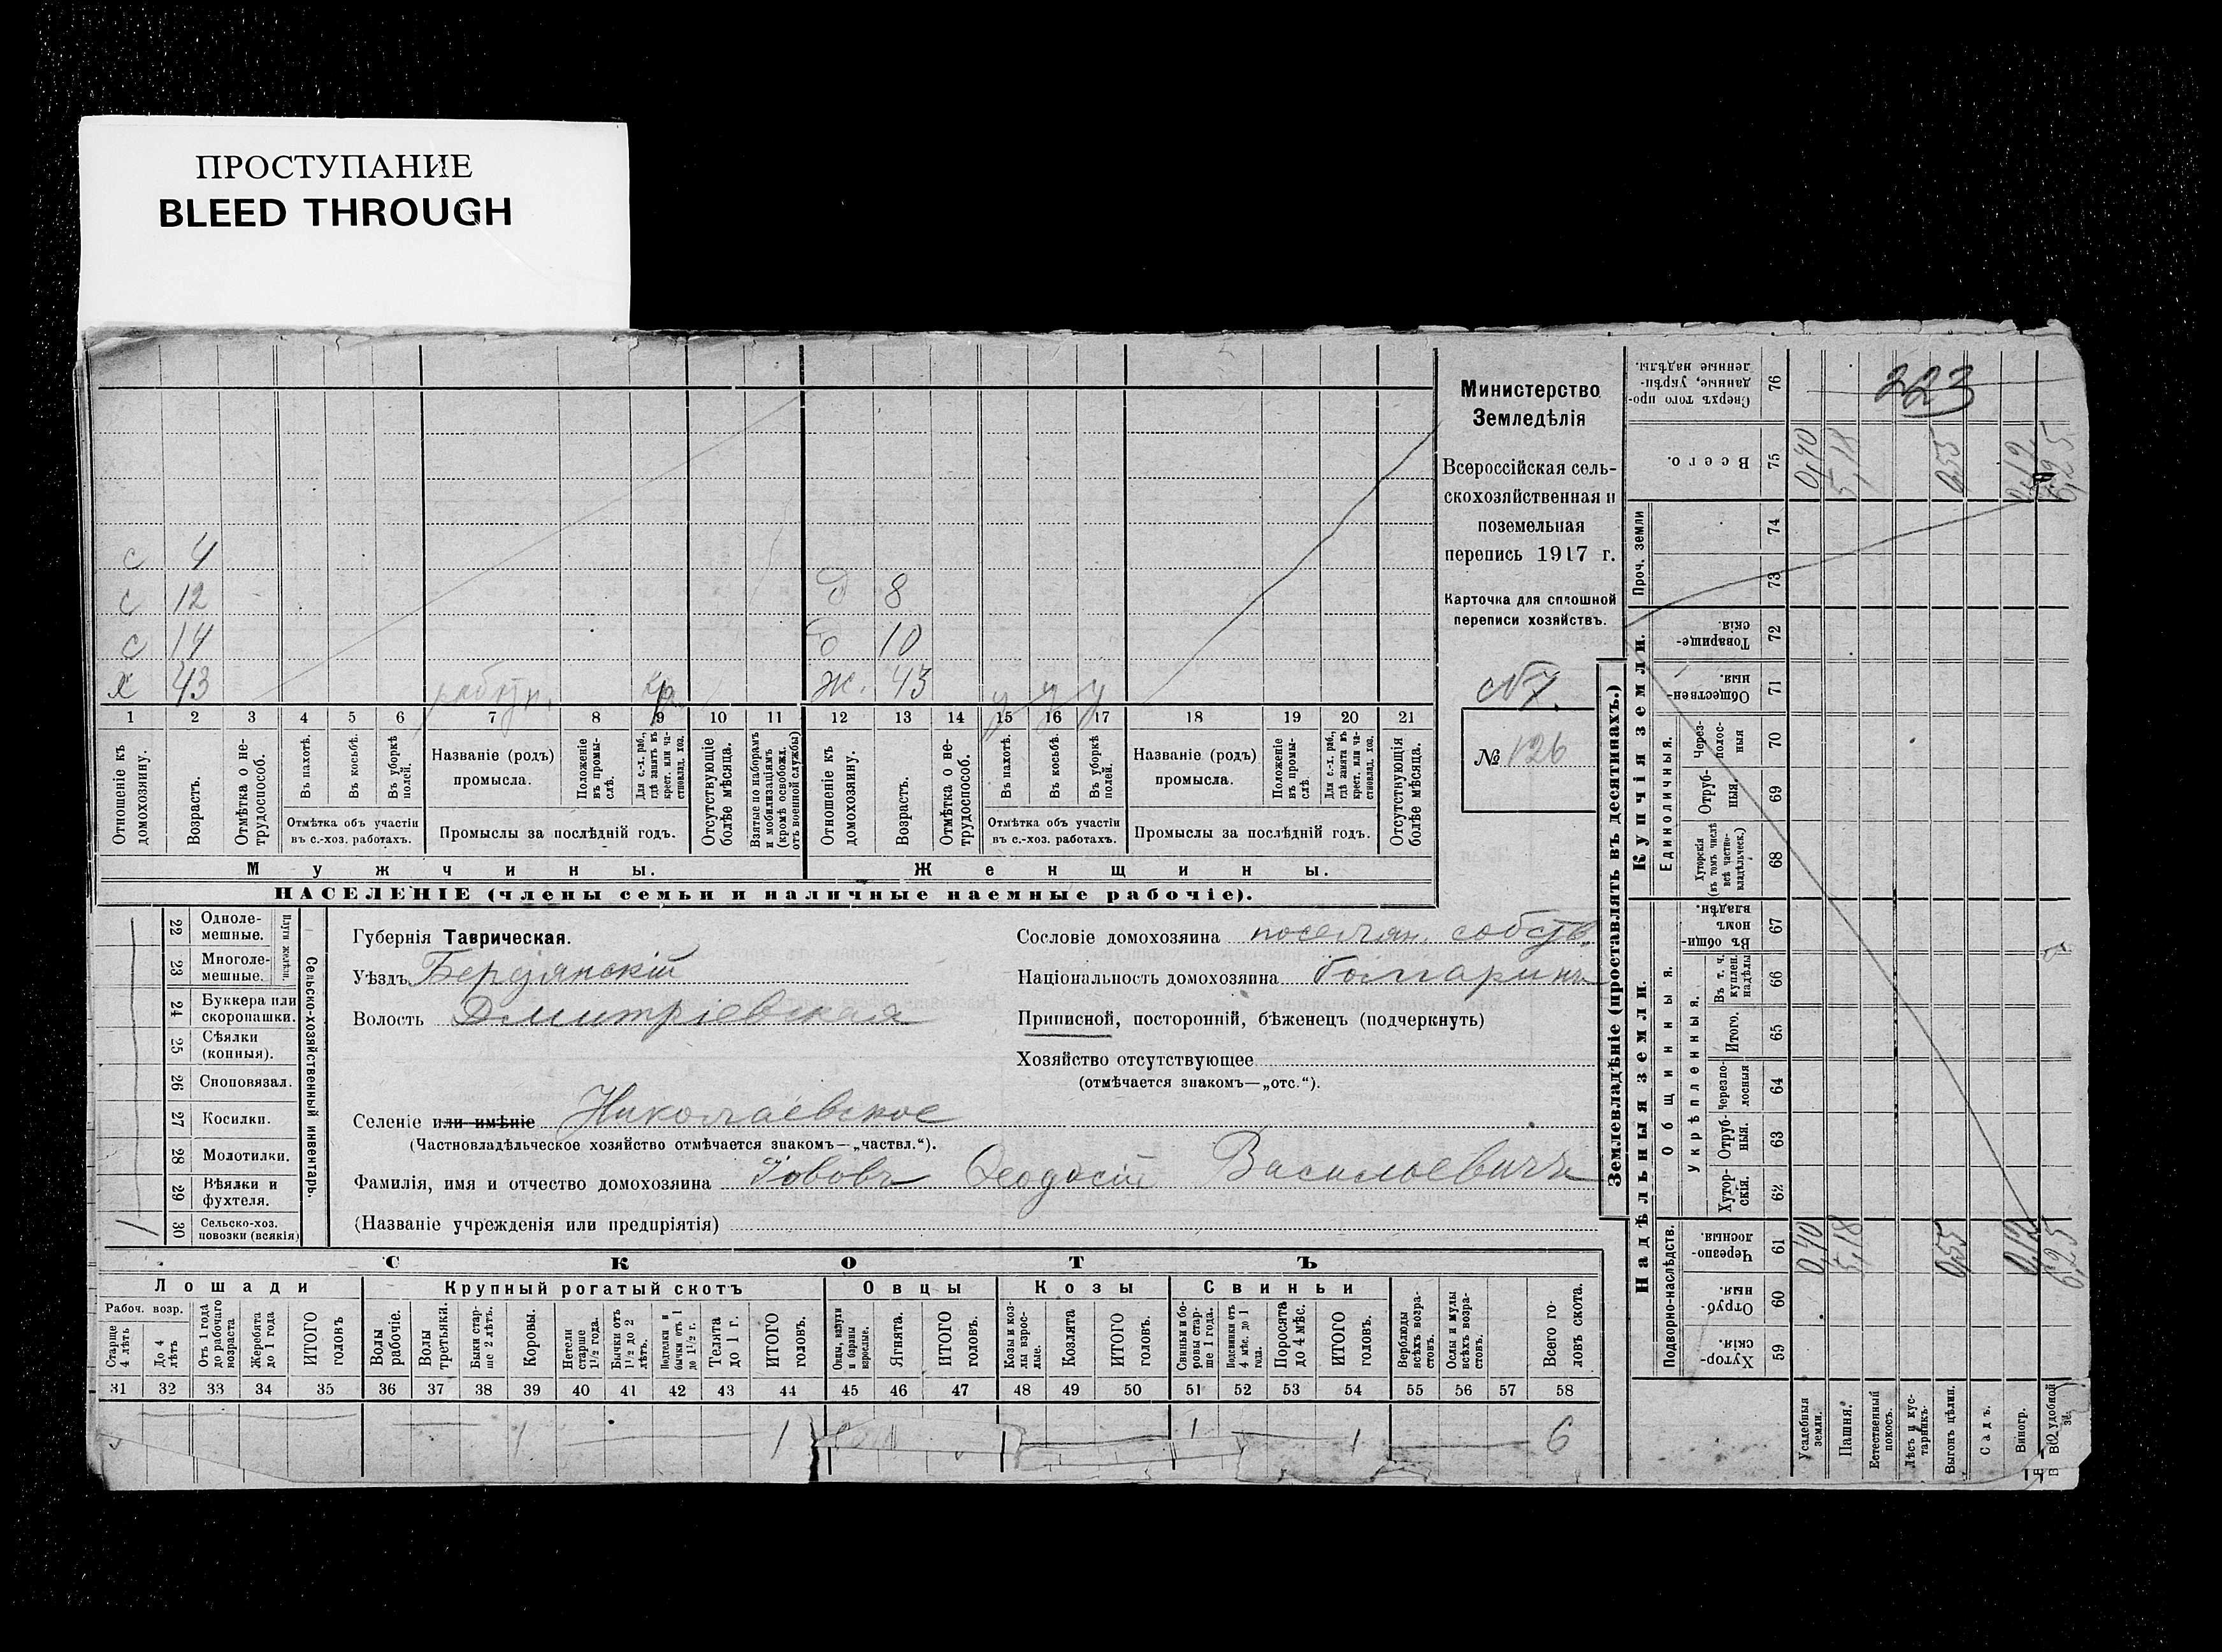 ПРОСТУПАНИЕ
BLEED THROUGH
с 4
с 12 д 8
с 14 д 10
х 43 Ж. 43 у у у
1 2 3 4 5 6 7 8 9 10 11 12 13 14 15 16 17 18 19 20 21
Отношеніе къ домохозяину.
Возрастъ.
Отмѣтка о не-трудоспособ.
Въ пахотѣ.
Въ косьбѣ.
Въ уборкѣ полей.
Отмѣтка объ участіи въ с.-хоз. работахъ.
Названіе (родъ) промысла.
Положеніе въ промы-слѣ.
Для с.-х. раб., гдѣ занятъ въ крест. или ча-стновлад. хоз.
Промыслы за послѣдній годъ.
Отсутствующіе болѣе мѣсяца.
Взятые по наборамъ и мобилизаціямъ (кромѣ освобожд. отъ военной службы)
Отношеніе къ домохозяину.
Возрастъ.
Отмѣтка о не-трудоспособ.
Въ пахотѣ.
Въ косьбѣ.
Въ уборкѣ полей.
Отмѣтка объ участіи въ с.-хоз. работахъ.
Названіе (родъ) промысла.
Положеніе въ промы-слѣ.
Для с.-х. раб., гдѣ занята въ крест. или ча-стновлад. хоз.
Промыслы за послѣдній годъ.
Отсутствующія болѣе мѣсяца.
Мужчины. Женщины.
НАСЕЛЕНІЕ (члены семьи и наличные наемные рабочіе).
Министерство
Земледѣлія
Всероссійская сель-
скохозяйственная и
поземельная
перепись 1917 г.
Карточка для сплошной
переписи хозяйствъ.
№ 126
22 Одноле-мешные.
23 Многоле-мешные.
Плуги желѣзн.
24 Буккера или скоропашки.
25 Сѣялки (конныя).
26 Сноповязал.
27 Косилки.
28 Молотилки.
29 Вѣялки и фухтеля.
1 30 Сельско-хоз. повозки (всякія)
Сельско-хозяйственный инвентарь.
Губернія Таврическая.
Уѣздъ Бердянскій
Волость Дмитріевская
Селеніе или имѣніе Николаевское
(Частновладѣльческое хозяйство отмѣчается знакомъ—„частвл.“).
Фамилія, имя и отчество домохозяина Іововъ Ѳеодосій Васильевичъ
(Названіе учрежденія или предпріятія)
Сословіе домохозяина поселян. собств.
Національность домохозяина болгаринъ
Приписной, посторонній, бѣженецъ (подчеркнуть)
Хозяйство отсутствующее
(отмѣчается знакомъ—„отс.“).
СКОТЪ
Лошади Крупный рогатый скотъ Овцы Козы Свиньи
Рабоч. возр.
Старше 4 лѣтъ
До 4 лѣтъ
Отъ 1 года до рабочаго возраста
Жеребята до 1 года
ИТОГО головъ
Волы рабочіе.
Волы третьяки.
Быки стар-ше 2 лѣтъ.
Коровы.
Нетели старше 1½ года.
Бычки отъ 1½ до 2 лѣтъ.
Подтелки и бычки отъ 1 до 1½ г.
Телята до 1 г.
ИТОГО головъ.
Овцы, валухи и бараны взрослые.
Ягнята.
ИТОГО головъ.
Козы и коз-лы взрос-лые.
Козлята
ИТОГО головъ.
Свиньи и бо-ровы стар-ше 1 года.
Подсвинки отъ 4 мѣс. до 1 года.
Поросята до 4 мѣс.
ИТОГО головъ.
Верблюды всѣхъ возра-стовъ.
Ослы и мулы всѣхъ возра-стовъ.
Всего го-ловъ скота.
31 32 33 34 35 36 37 38 39 40 41 42 43 44 45 46 47 48 49 50 51 52 53 54 55 56 57 58
1 1 1 1 6
Землевладѣніе (проставлять въ десятинахъ.)
Надѣльныя земли. Купчія земли.
Подворно-наслѣдств. Общинныя. Укрѣпленныя. Единоличныя. Проч. земли
Хутор-скія. 59
Отруб-ныя. 60
Черезпо-лосныя. 61 0,40 5,18 0,55 0,12 6,25
Хутор-скія. 62
Отруб-ныя. 63
Черезпо-лосныя 64
Итого. 65
Въ т. ч. куплен. надѣлы 66
Въ общи-нномъ владѣн. 67
Хуторскія (въ томъ числѣ всѣ частно-владѣльческ.) 68
Отруб-ныя. 69
Через-полос-ныя 70
Обществен-ныя. 71
Товарище-скія. 72
73
74
Всего. 75 0,40 5,18 0,55 0,12 6,25
Сверхъ того про-данные, укрѣп-ленные надѣлы. 76 223
Усадебныя земли.
Пашня.
Естественный покосъ.
Лѣсъ и кус-тарникъ.
Выгонъ цѣлин.
Садъ.
Виногр.